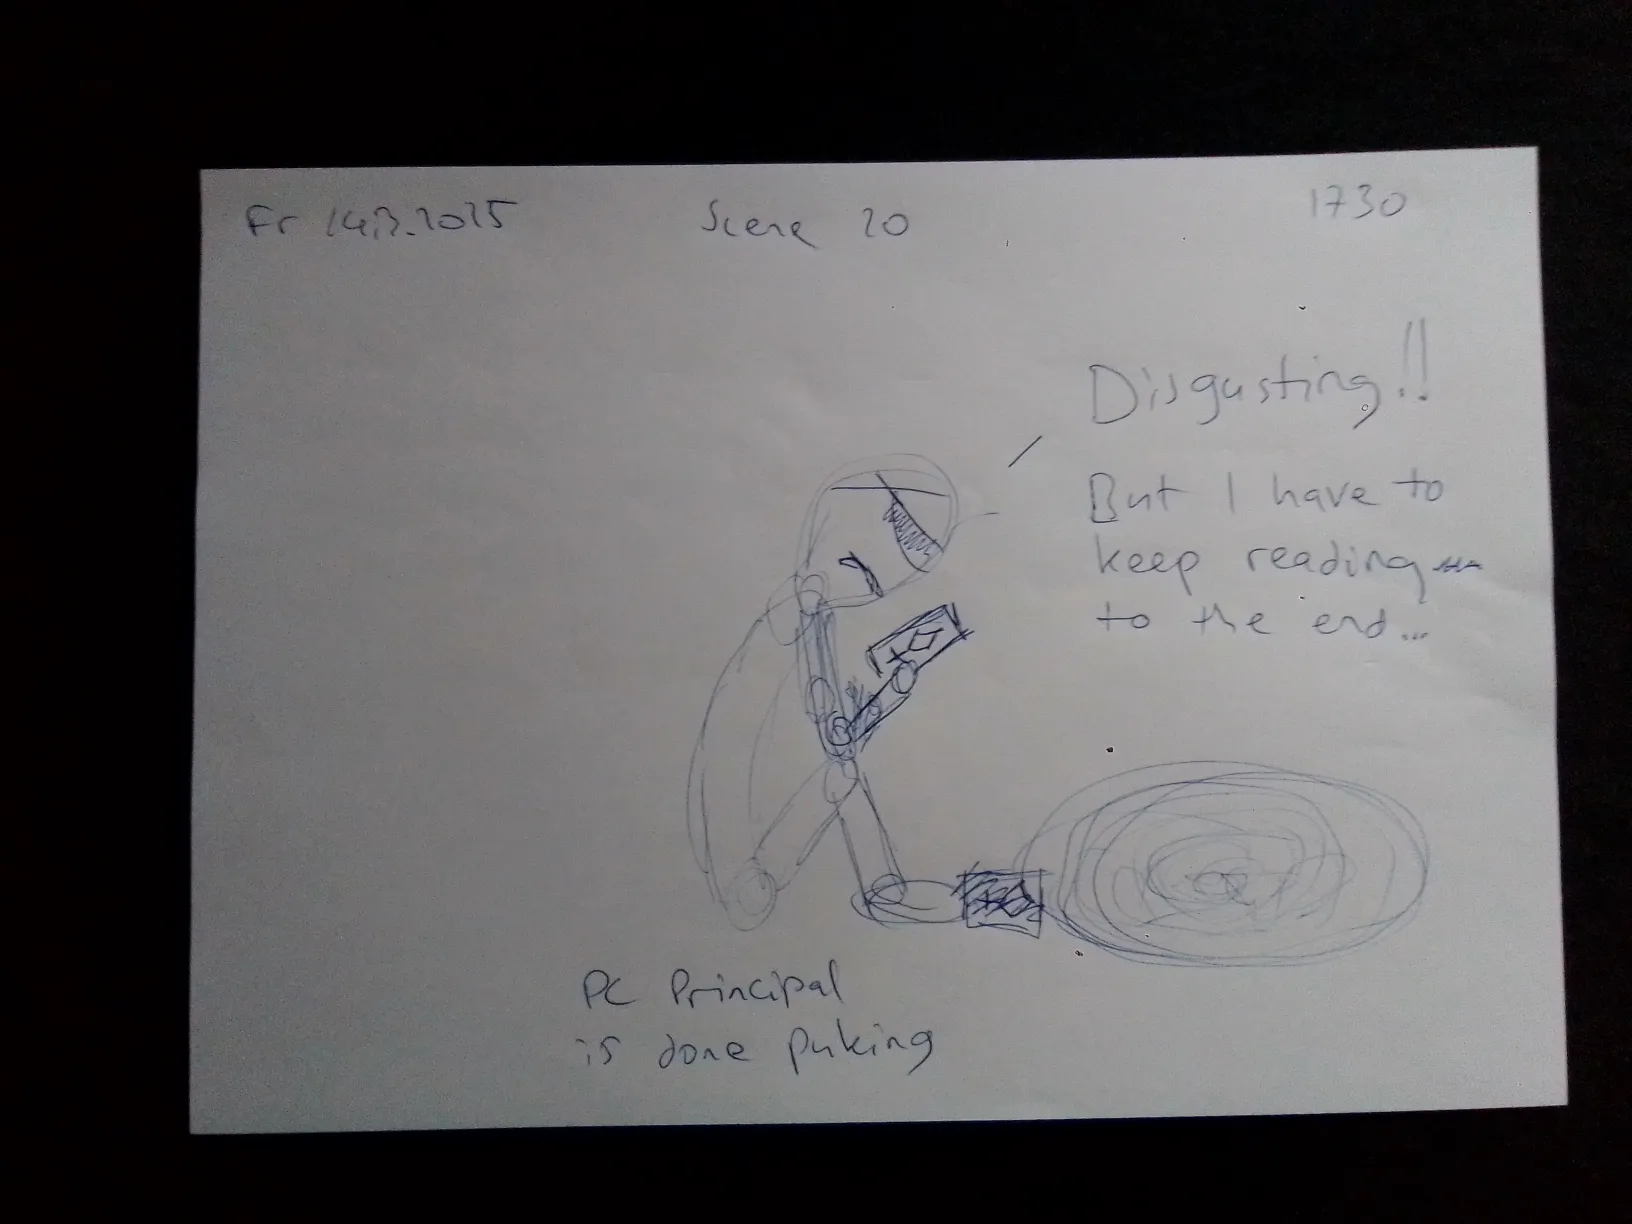 Fr 14.3.2025
Scene 20
1730
Disgusting!!
But I have to
keep reading
to the end...
PC Principal
is done puking